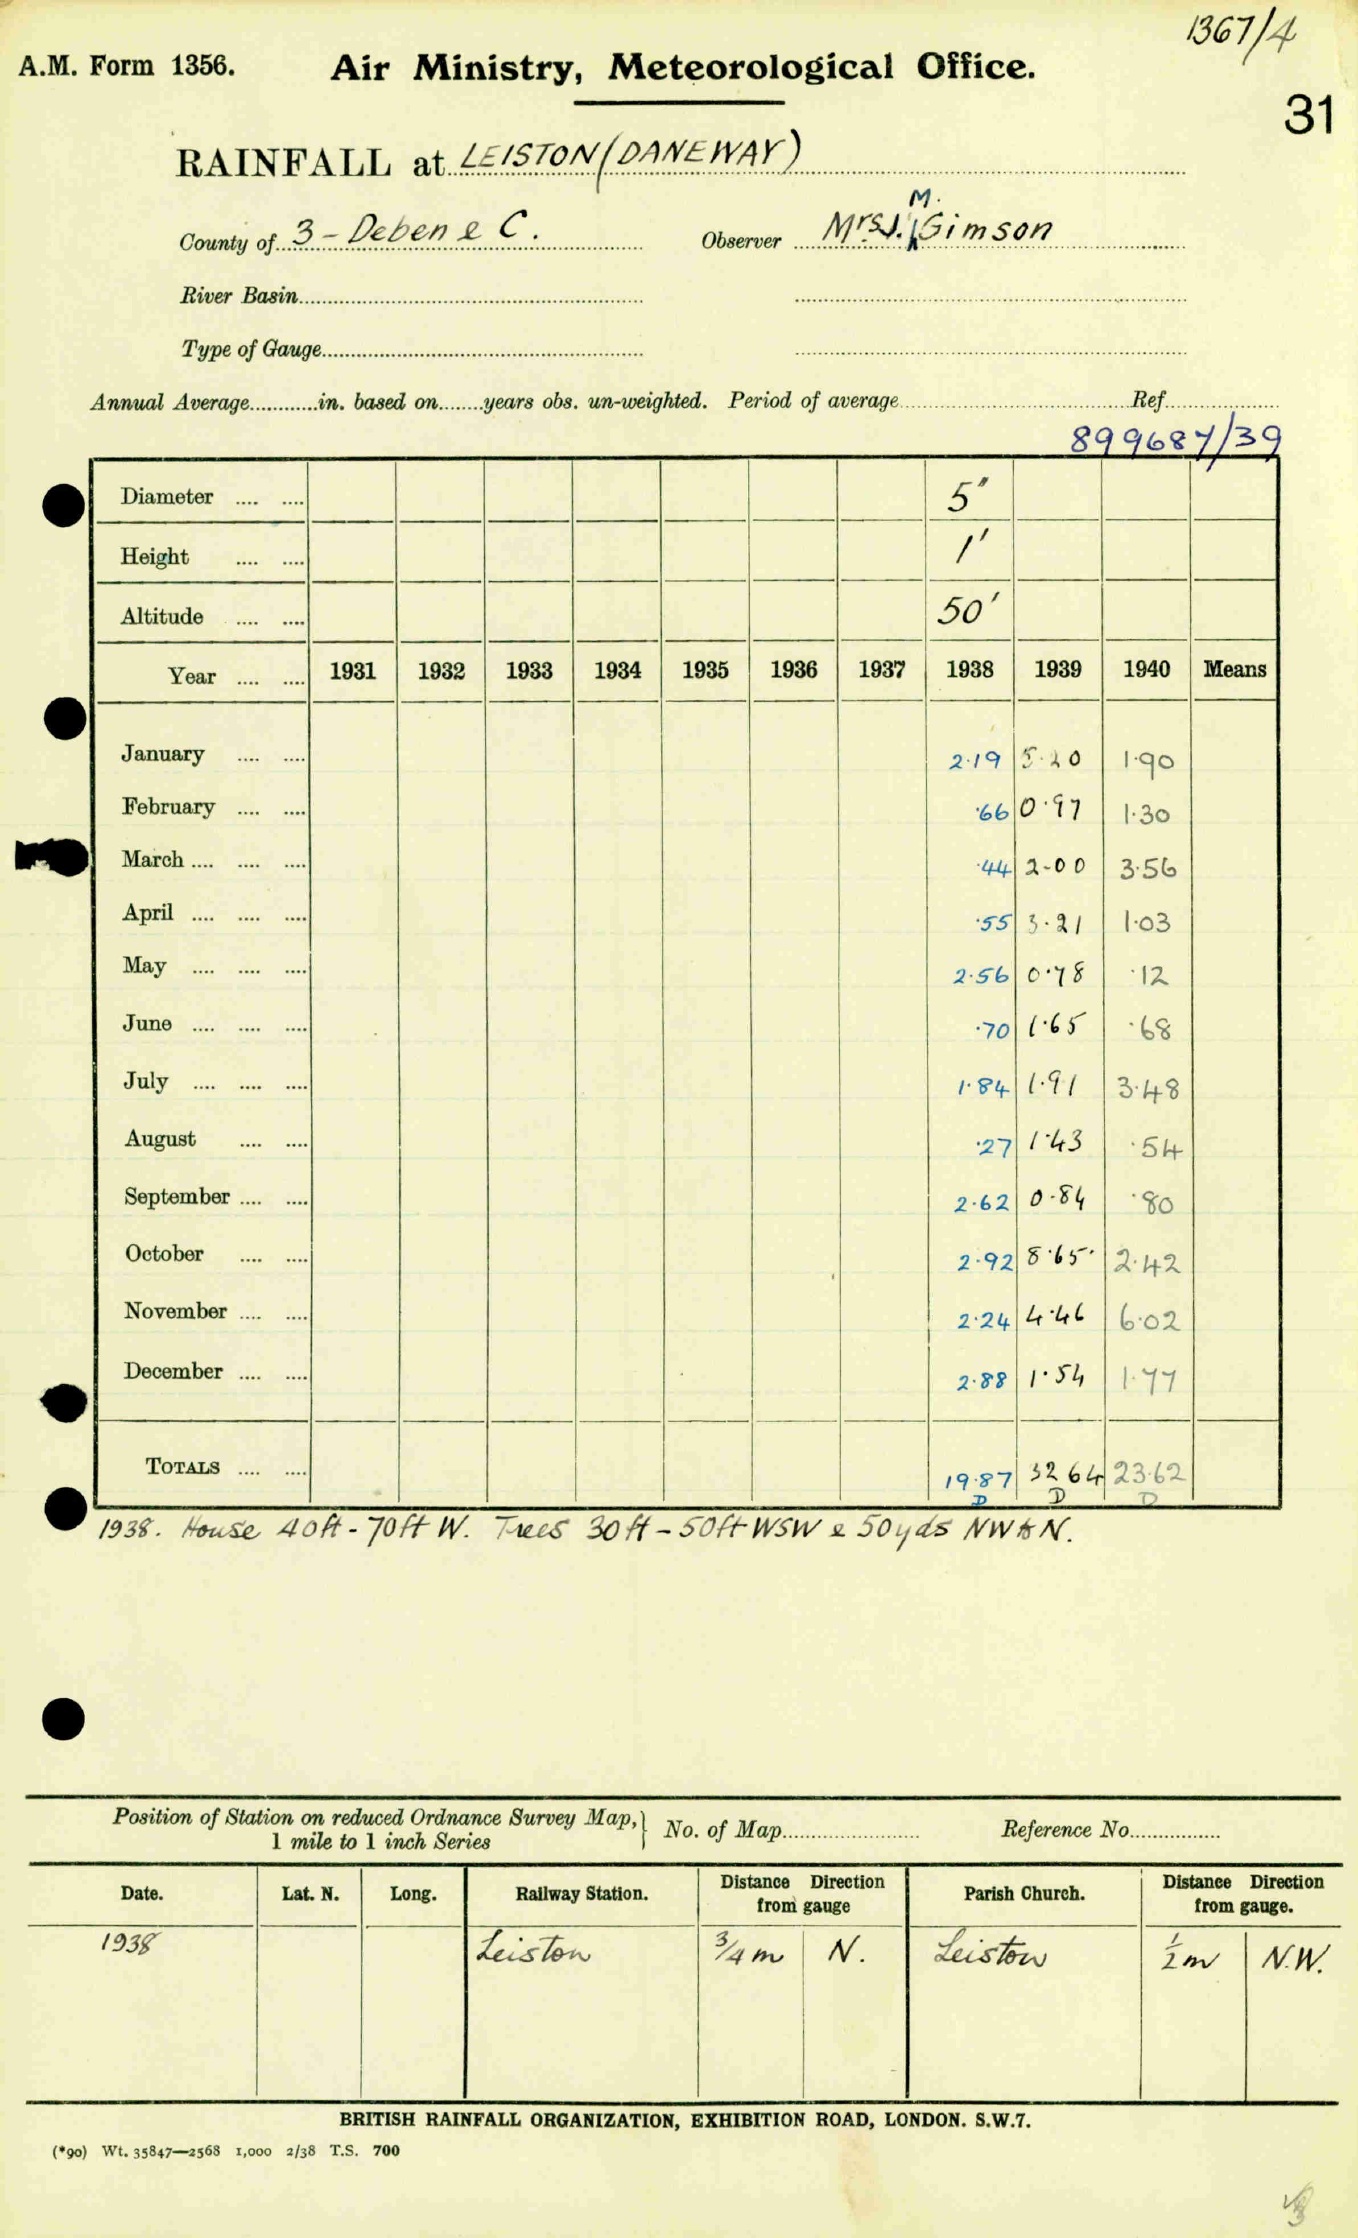 1367/4
A.M. Form 1356. Air Ministry, Meteorological Office.
31
RAINFALL at LEISTON (DANEWAY)
M.
County of 3 - Deben & C. Observer Mrs J. Gimson
River Basin
Type of Gauge
Annual Average............in. based on........years obs. un-weighted. Period of average Ref.
899687/39
Diameter .... .... 5"
Height .... .... 1'
Altitude .... .... 50'
Year .... .... 1931 1932 1933 1934 1935 1936 1937 1938 1939 1940 Means
January .... .... 2·19 5·20 1·90
February .... .... ·66 0·97 1·30
March .... .... .... ·44 2·00 3·56
April .... .... .... ·55 3·21 1·03
May .... .... .... 2·56 0·78 ·12
June .... .... .... ·70 1·65 ·68
July .... .... .... 1·84 1·91 3·48
August .... .... ·27 1·43 ·54
September .... .... 2·62 0·84 ·80
October .... .... 2·92 8·65 2·42
November .... .... 2·24 4·46 6·02
December .... .... 2·88 1·54 1·77
TOTALS .... .... 19·87 32 64 23·62
D D D
1938. House 40ft - 70ft W. Trees 30ft - 50ft WSW & 50yds NW to N.
Position of Station on reduced Ordnance Survey Map, } No. of Map Reference No.
1 mile to 1 inch Series
Date. Lat. N. Long. Railway Station. Distance Direction from gauge Parish Church. Distance Direction from gauge.
1938 Leiston 3/4 m N. Leiston 1/2 m N.W.
BRITISH RAINFALL ORGANIZATION, EXHIBITION ROAD, LONDON. S.W.7.
(*90) Wt. 35847—2568 1,000 2/38 T.S. 700